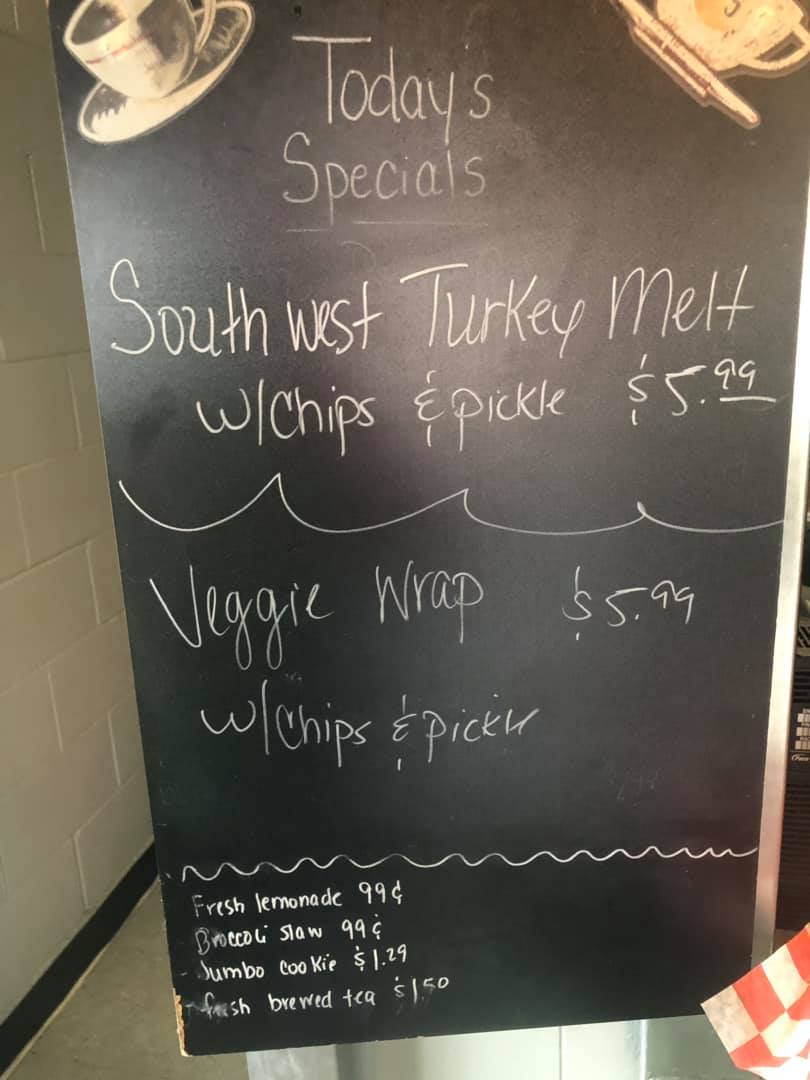 Todays
Specials
Southwest Turkey Melt
w/Chips & pickle $5.99
Veggie Wrap $5.99
w/Chips & pickle
Fresh lemonade 99¢
Broccoli slaw 99¢
Jumbo cookie $1.29
fresh brewed tea $1.50